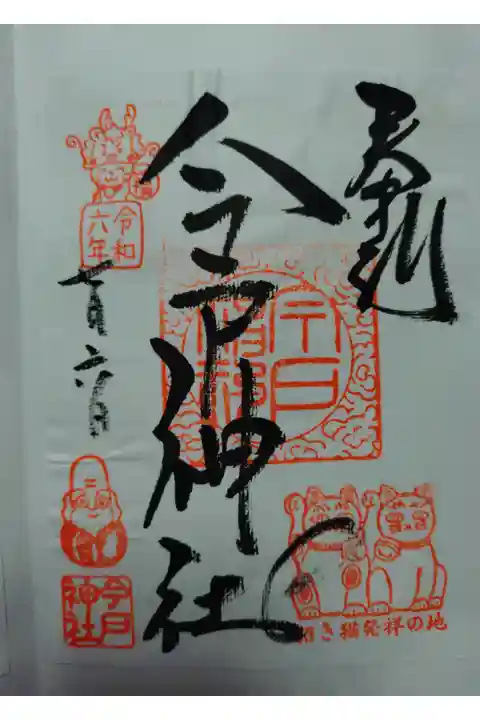 奉拝
今戸神社
令和
六年
七月六日
今戸
神社
招き猫発祥の地